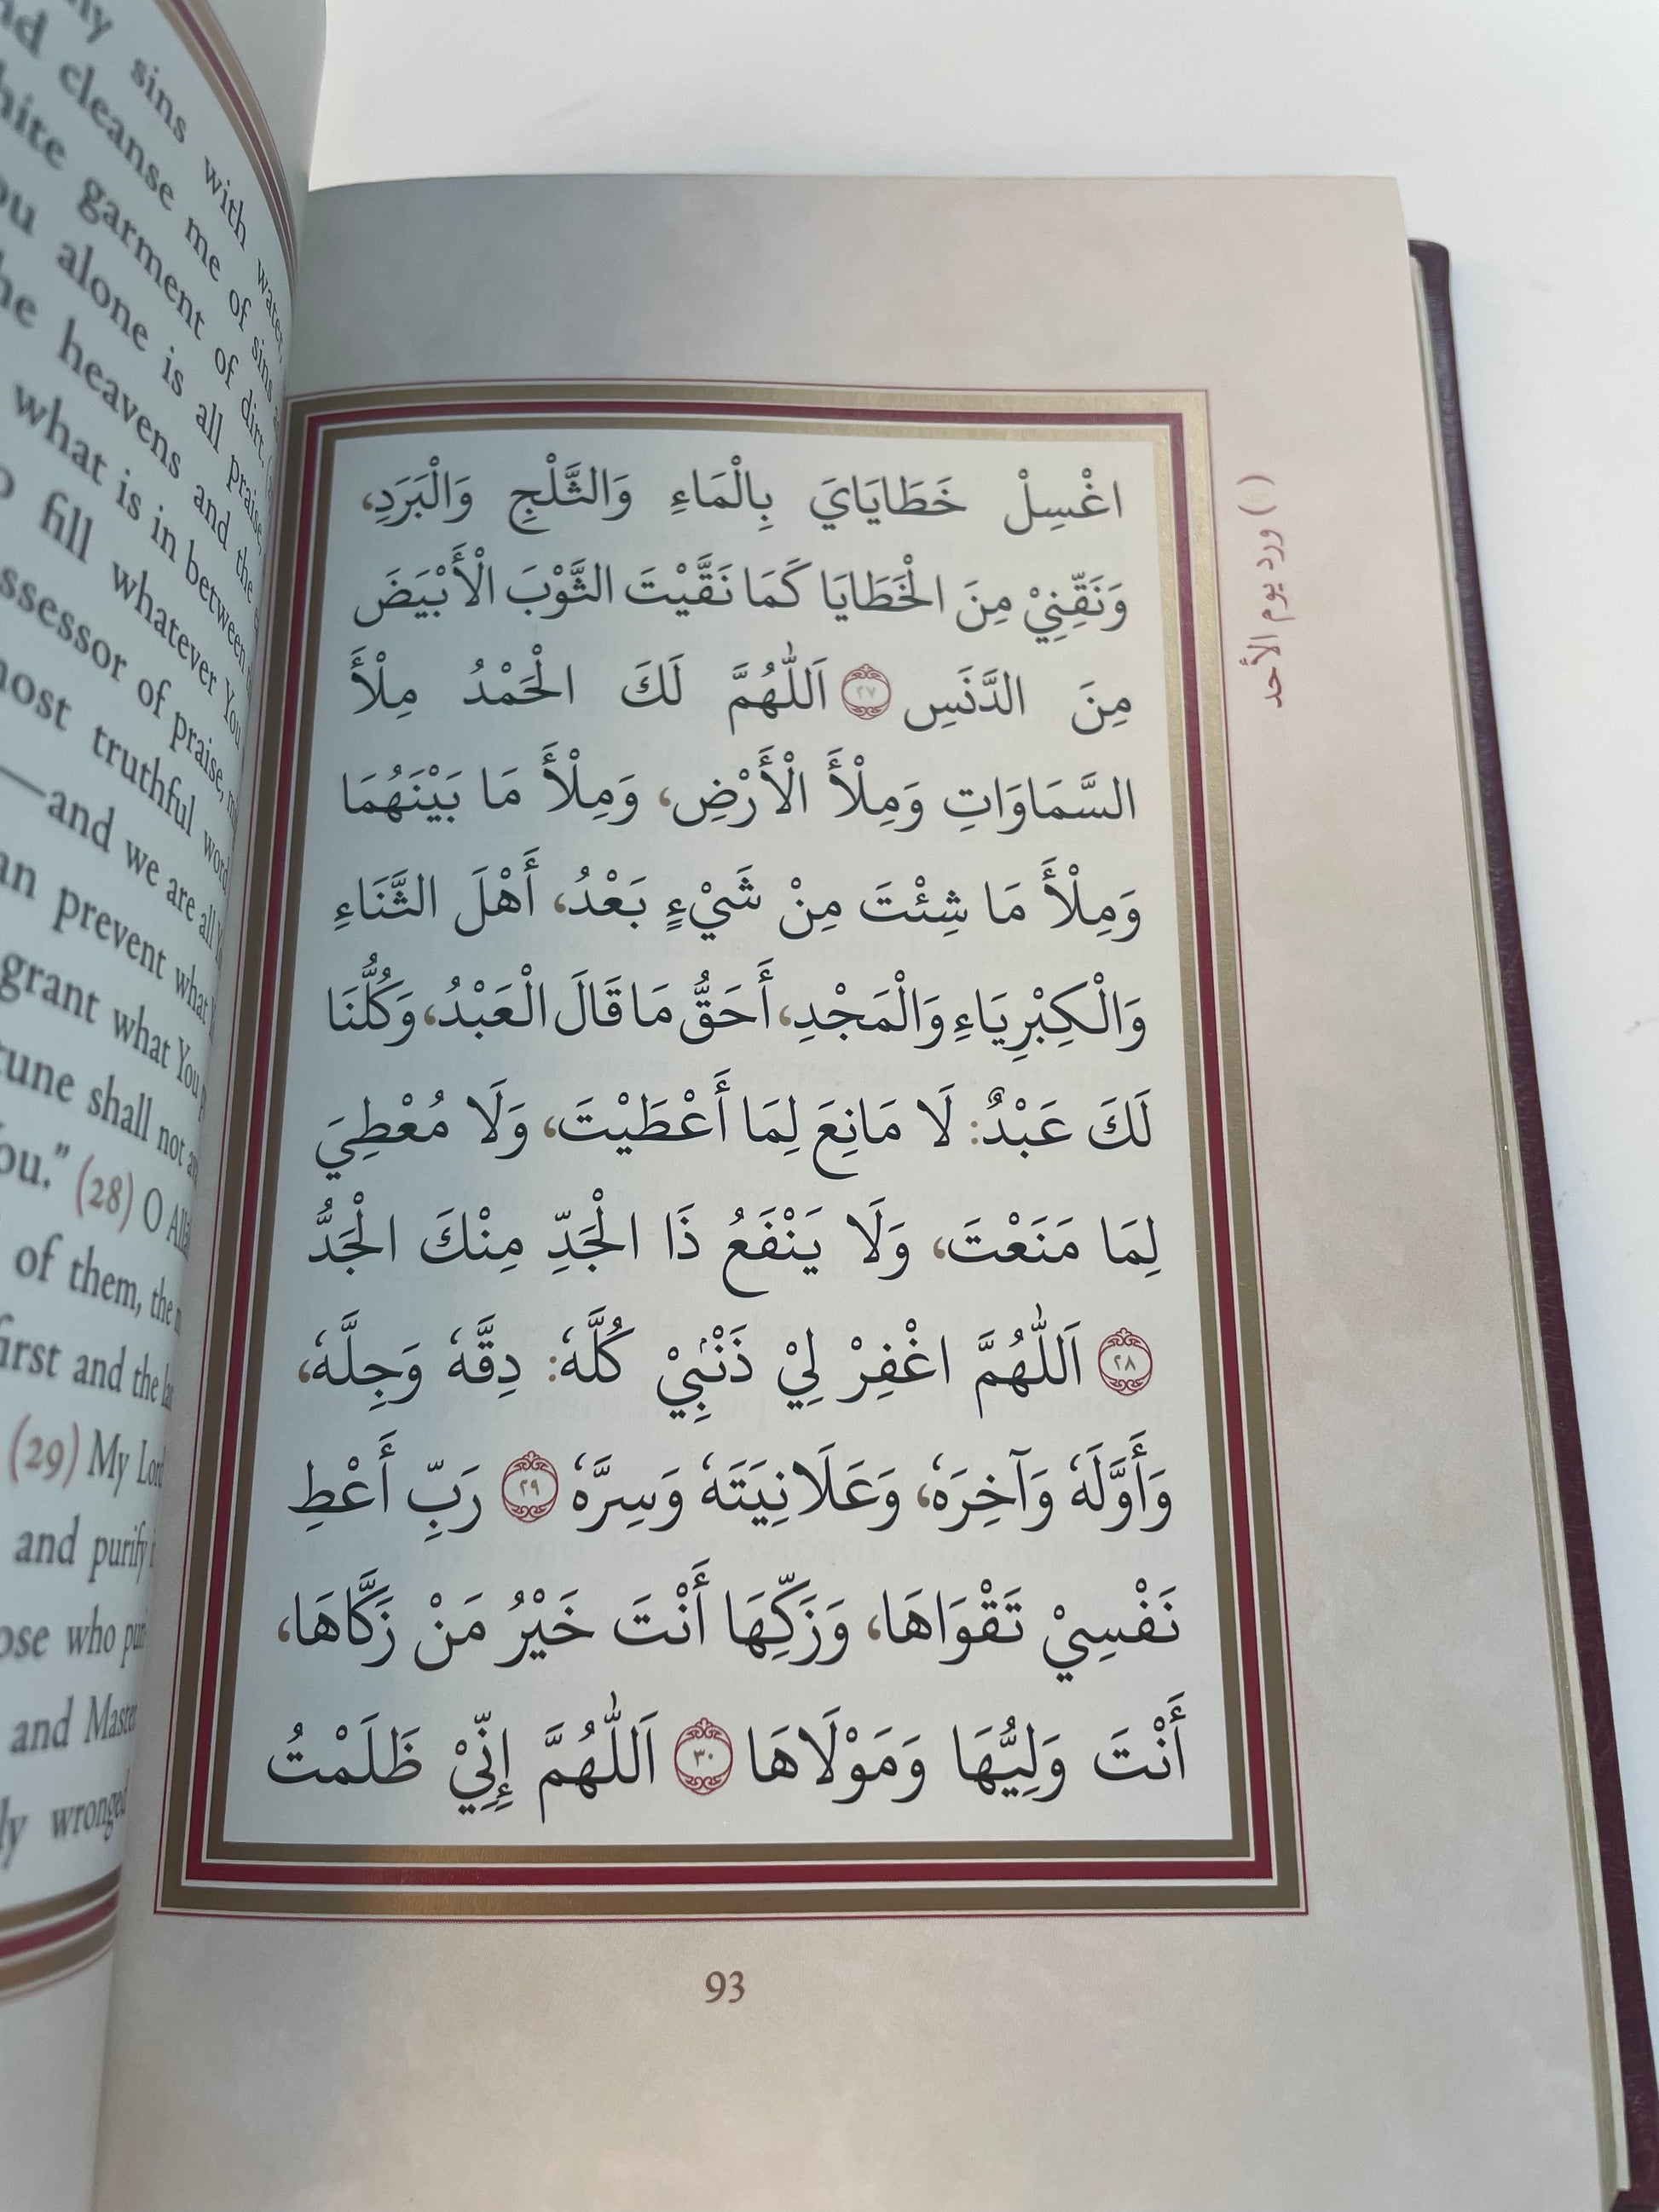 ny sins with water,
nd cleanse me of sins
hite garment of dirt,
ou alone is all praise,
he heavens and the
what is in between
o fill whatever You
ssessor of praise,
most truthful word
—and we are all
an prevent what
grant what You
tune shall not
ou.” (28) O Alla
of them, the
first and the
(29) My Lord
and purify
ose who
and Master
ly wronged
اغْسِلْ خَطَايَايَ بِالْمَاءِ وَالثَّلْجِ وَالْبَرَدِ،
وَنَقِّنِيْ مِنَ الْخَطَايَا كَمَا نَقَّيْتَ الثَّوْبَ الْأَبْيَضَ
مِنَ الدَّنَسِ ٢٧ اَللّٰهُمَّ لَكَ الْحَمْدُ مِلْأَ
السَّمَاوَاتِ وَمِلْأَ الْأَرْضِ، وَمِلْأَ مَا بَيْنَهُمَا
وَمِلْأَ مَا شِئْتَ مِنْ شَيْءٍ بَعْدُ، أَهْلَ الثَّنَاءِ
وَالْكِبْرِيَاءِ وَالْمَجْدِ، أَحَقُّ مَا قَالَ الْعَبْدُ، وَكُلُّنَا
لَكَ عَبْدٌ: لَا مَانِعَ لِمَا أَعْطَيْتَ، وَلَا مُعْطِيَ
لِمَا مَنَعْتَ، وَلَا يَنْفَعُ ذَا الْجَدِّ مِنْكَ الْجَدُّ
٢٨ اَللّٰهُمَّ اغْفِرْ لِيْ ذَنْبِيْ كُلَّهٗ: دِقَّهٗ وَجِلَّهٗ،
وَأَوَّلَهٗ وَآخِرَهٗ، وَعَلَانِيَتَهٗ وَسِرَّهٗ ٢٩ رَبِّ أَعْطِ
نَفْسِيْ تَقْوَاهَا، وَزَكِّهَا أَنْتَ خَيْرُ مَنْ زَكَّاهَا،
أَنْتَ وَلِيُّهَا وَمَوْلَاهَا ٣٠ اَللّٰهُمَّ إِنِّيْ ظَلَمْتُ
ورد يوم الأحد
93